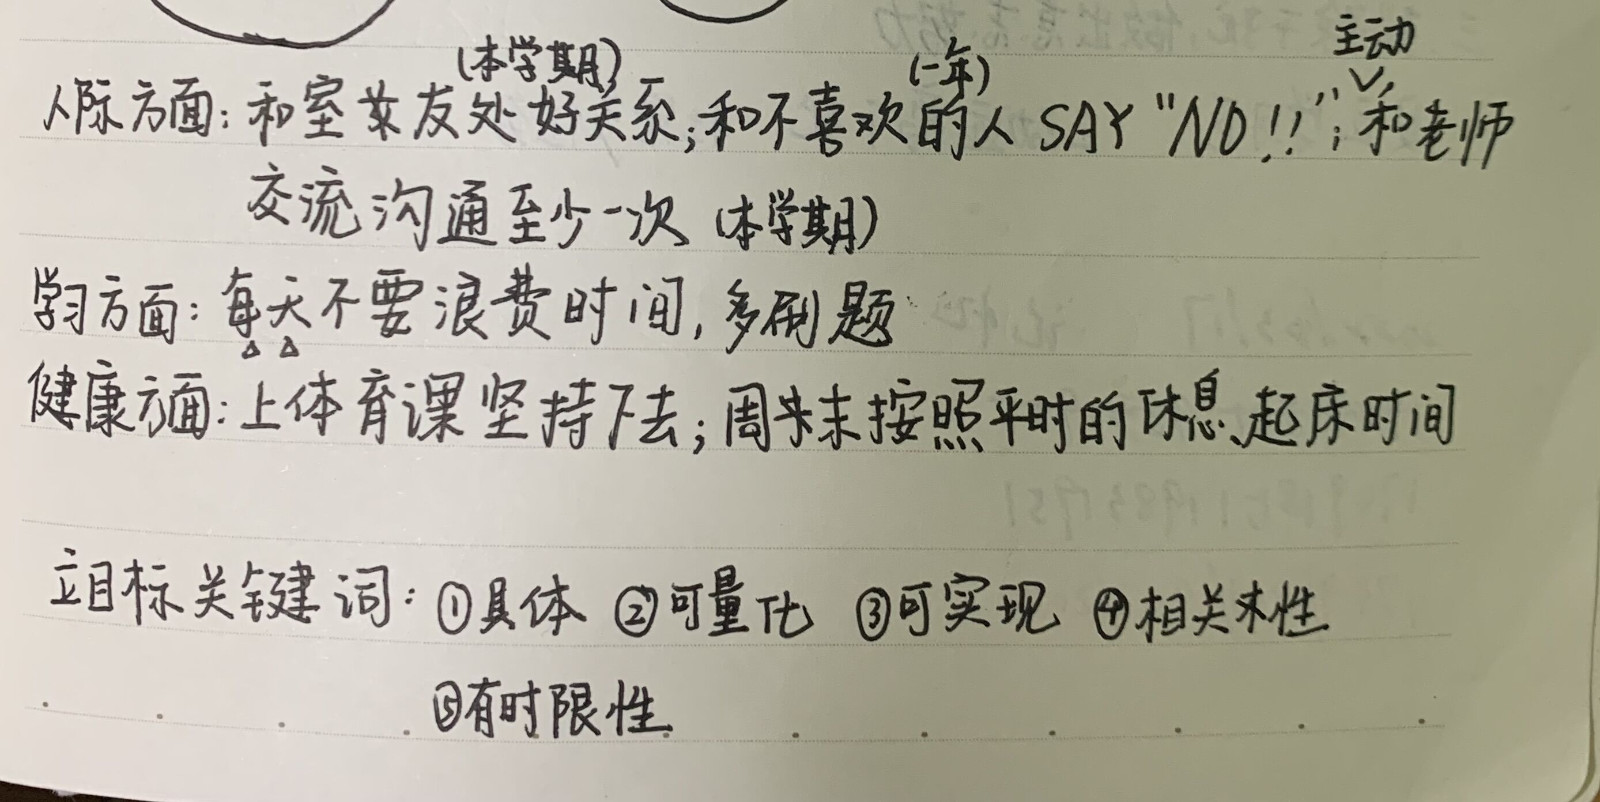 (本学期) (一年) 主动
人际方面：和室友处好关系；和不喜欢的人 SAY "NO!!"；和老师
交流沟通至少一次 (本学期)
学习方面：每天不要浪费时间，多刷题
健康方面：上体育课坚持下去；周末按照平时的休息、起床时间
立目标关键词：①具体 ②可量化 ③可实现 ④相关性
⑤有时限性